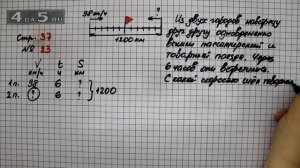 4 ALL 5
Стр. 37
№ 23
38км/ч
?
1200 км
V t S
км/ч ч км
1 п. 38 6 ?
2 п. ? 6 ?
1200
Из двух городов навстречу
друг другу одновременно
вышли пассажирский и
товарный поезда. Через
6 часов они встретились.
С какой скоростью шёл товарный